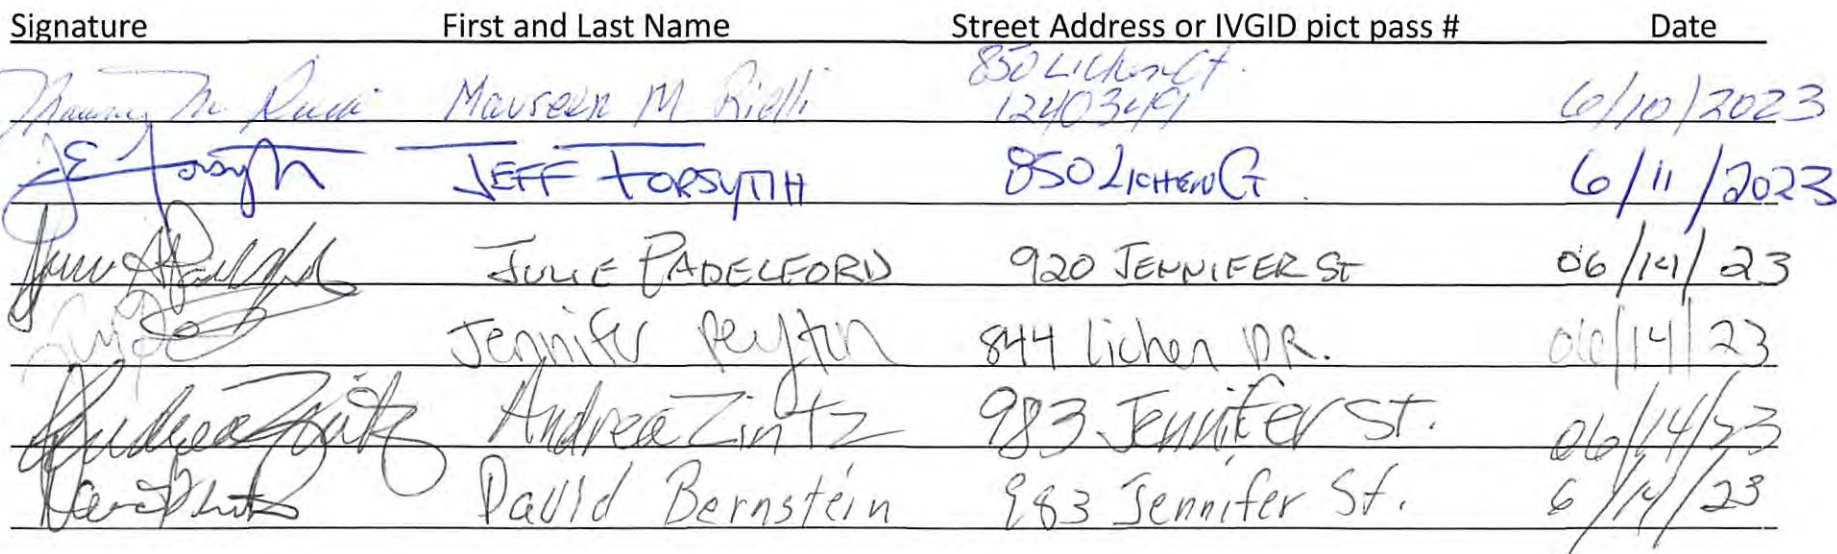 Signature First and Last Name Street Address or IVGID pict pass # Date
850 Lichen Ct.
Maureen M Rielli 12403491 6/10/2023
JE Forsyth JEFF FORSYTH 850 LICHEN CT 6/11/2023
JULIE PADELFORD 920 JENNIFER ST 06/14/23
Jennifer Peyton 844 Lichen DR. 06/14/23
Andrea Zintz Andrea Zintz 983 Jennifer St. 06/14/23
David Bernstein 983 Jennifer St. 6/14/23